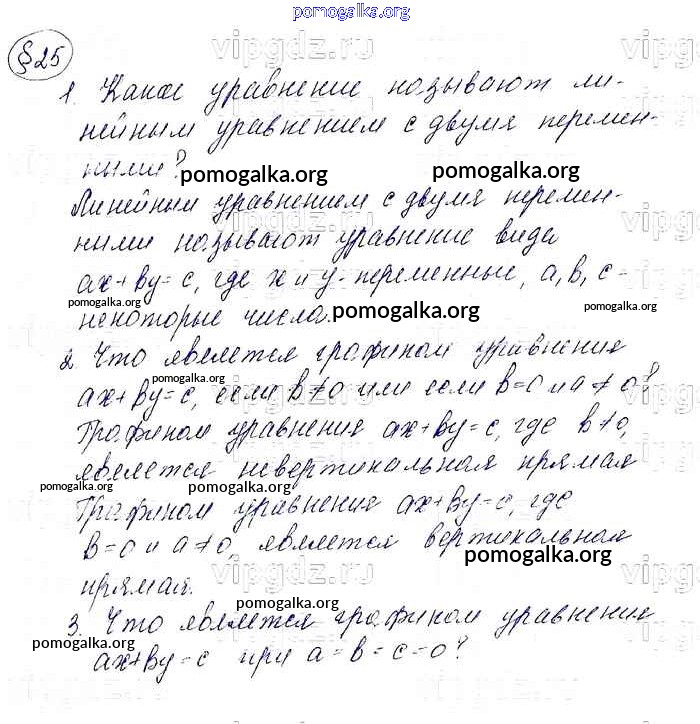 pomogalka.org
vipgdz.ru
§25
1. Какое уравнение называют ли-
нейным уравнением с двумя перемен-
ными?
pomogalka.org
Линейным уравнением с двумя перемен-
ными называют уравнение вида
ax+by=c, где x и y - переменные, a, b, c -
pomogalka.org
pomogalka.org
некоторые числа.
pomogalka.org
2. Что является графиком уравнения
pomogalka.org
ax+by=c, если b≠0 или если b=0 и a≠0?
Графиком уравнения ax+by=c, где b≠0,
является невертикальная прямая
pomogalka.org
pomogalka.org
Графиком уравнения ax+by=c, где
b=0 и a≠0, является вертикальная
pomogalka.org
прямая.
vipgdz.ru
pomogalka.org
3. Что является графиком уравнения
pomogalka.org
ax+by=c при a=b=c=0?
vipgdz.ru